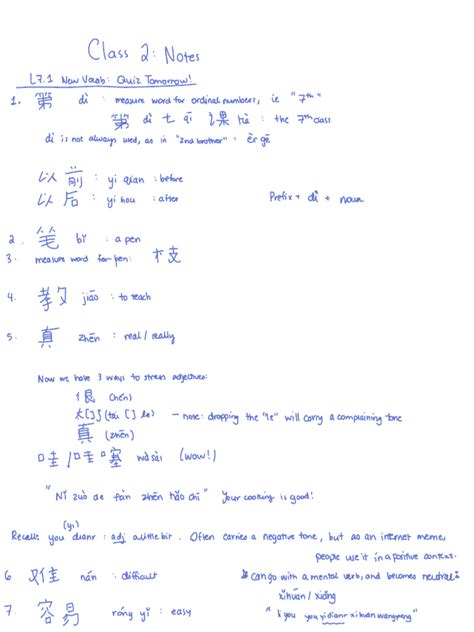 Class 2: Notes
L7.1 New Vocab: Quiz Tomorrow!
1. 第 dì : measure word for ordinal numbers, ie "7th"
第 dì 七 qī 课 kè : the 7th class
dì is not always used, as in "2nd brother" : èr gē
以前 : yi qian : before
以后 : yi hou : after
Prefix + dì + noun
2. 笔 bǐ : a pen
3. measure word for pen: 枝
4. 教 jiāo : to teach
5. 真 zhēn : real / really
Now we have 3 ways to stress adjectives:
很 (hěn)
太[ ]了 (tài [ ] le) - note: dropping the "le" will carry a complaining tone
真 (zhēn)
哇 / 哇塞 wà sài (wow!)
"Nǐ zuò de fàn zhēn hǎo chī" Your cooking is good!
Recall: you (yi) dianr : adj a little bit. Often carries a negative tone, but as an internet meme,
people use it in a positive context.
6 难 nán : difficult
& can go with a mental verb, and becomes neutral:
xǐhuān / xiǎng
7. 容易 róng yì : easy
yidianr xihuan wangneng"